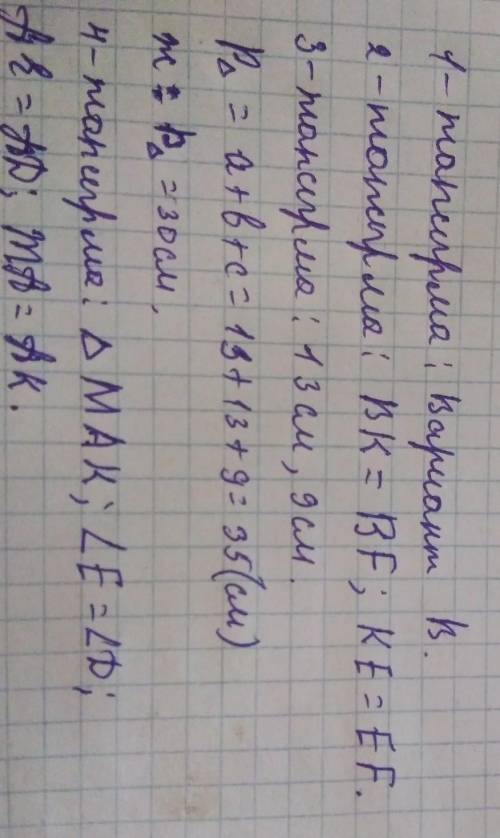 1-тапсырма: Вариант В.
2-тапсырма: BK = BF; KE = EF.
3-тапсырма: 13 см, 9 см.
P△ = a + b + c = 13 + 13 + 9 = 35 (см)
P△ = 30 см,
4-тапсырма: △ MAK; ∠E = ∠D;
AE = AD; MA = AK.